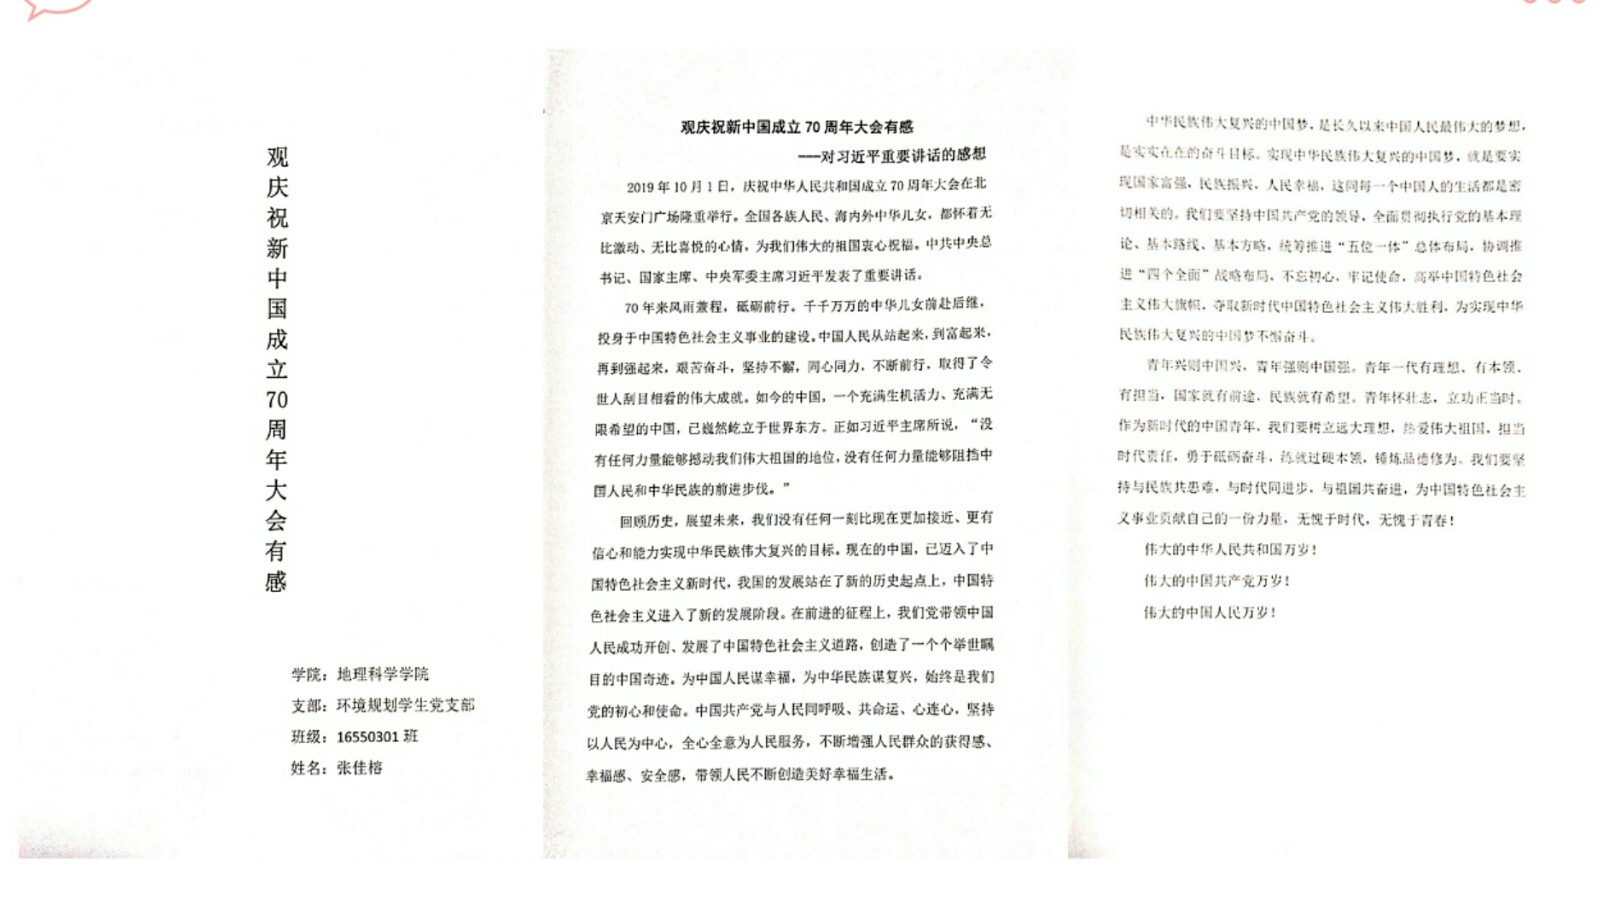 观庆祝新中国成立70周年大会有感
学院：地理科学学院
支部：环境规划学生党支部
班级：16550301班
姓名：张佳榕
观庆祝新中国成立 70 周年大会有感
---对习近平重要讲话的感想
2019 年 10 月 1 日，庆祝中华人民共和国成立 70 周年大会在北
京天安门广场隆重举行。全国各族人民、海内外中华儿女，都怀着无
比激动、无比喜悦的心情，为我们伟大的祖国衷心祝福。中共中央总
书记、国家主席、中央军委主席习近平发表了重要讲话。
70 年来风雨兼程，砥砺前行。千千万万的中华儿女前赴后继，
投身于中国特色社会主义事业的建设。中国人民从站起来，到富起来，
再到强起来，艰苦奋斗，坚持不懈，同心同力，不断前行，取得了令
世人刮目相看的伟大成就。如今的中国，一个充满生机活力、充满无
限希望的中国，已巍然屹立于世界东方。正如习近平主席所说，“没
有任何力量能够撼动我们伟大祖国的地位，没有任何力量能够阻挡中
国人民和中华民族的前进步伐。”
回顾历史，展望未来，我们没有任何一刻比现在更加接近、更有
信心和能力实现中华民族伟大复兴的目标。现在的中国，已迈入了中
国特色社会主义新时代，我国的发展站在了新的历史起点上，中国特
色社会主义进入了新的发展阶段。在前进的征程上，我们党带领中国
人民成功开创、发展了中国特色社会主义道路，创造了一个个举世瞩
目的中国奇迹。为中国人民谋幸福，为中华民族谋复兴，始终是我们
党的初心和使命。中国共产党与人民同呼吸、共命运、心连心，坚持
以人民为中心，全心全意为人民服务，不断增强人民群众的获得感、
幸福感、安全感，带领人民不断创造美好幸福生活。
中华民族伟大复兴的中国梦，是长久以来中国人民最伟大的梦想，
是实实在在的奋斗目标。实现中华民族伟大复兴的中国梦，就是要实
现国家富强，民族振兴，人民幸福，这同每一个中国人的生活都是密
切相关的。我们要坚持中国共产党的领导，全面贯彻执行党的基本理
论、基本路线、基本方略，统筹推进“五位一体”总体布局，协调推
进“四个全面”战略布局，不忘初心，牢记使命，高举中国特色社会
主义伟大旗帜，夺取新时代中国特色社会主义伟大胜利，为实现中华
民族伟大复兴的中国梦不懈奋斗。
青年兴则中国兴，青年强则中国强。青年一代有理想、有本领、
有担当，国家就有前途，民族就有希望。青年怀壮志，立功正当时。
作为新时代的中国青年，我们要树立远大理想，热爱伟大祖国，担当
时代责任，勇于砥砺奋斗，练就过硬本领，锤炼品德修为。我们要坚
持与民族共患难，与时代同进步，与祖国共奋进，为中国特色社会主
义事业贡献自己的一份力量，无愧于时代，无愧于青春！
伟大的中华人民共和国万岁！
伟大的中国共产党万岁！
伟大的中国人民万岁！